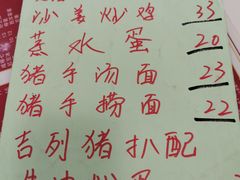 沙姜炒鸡 33
蒸水蛋 20
猪手汤面 23
猪手捞面 22
吉列猪扒配